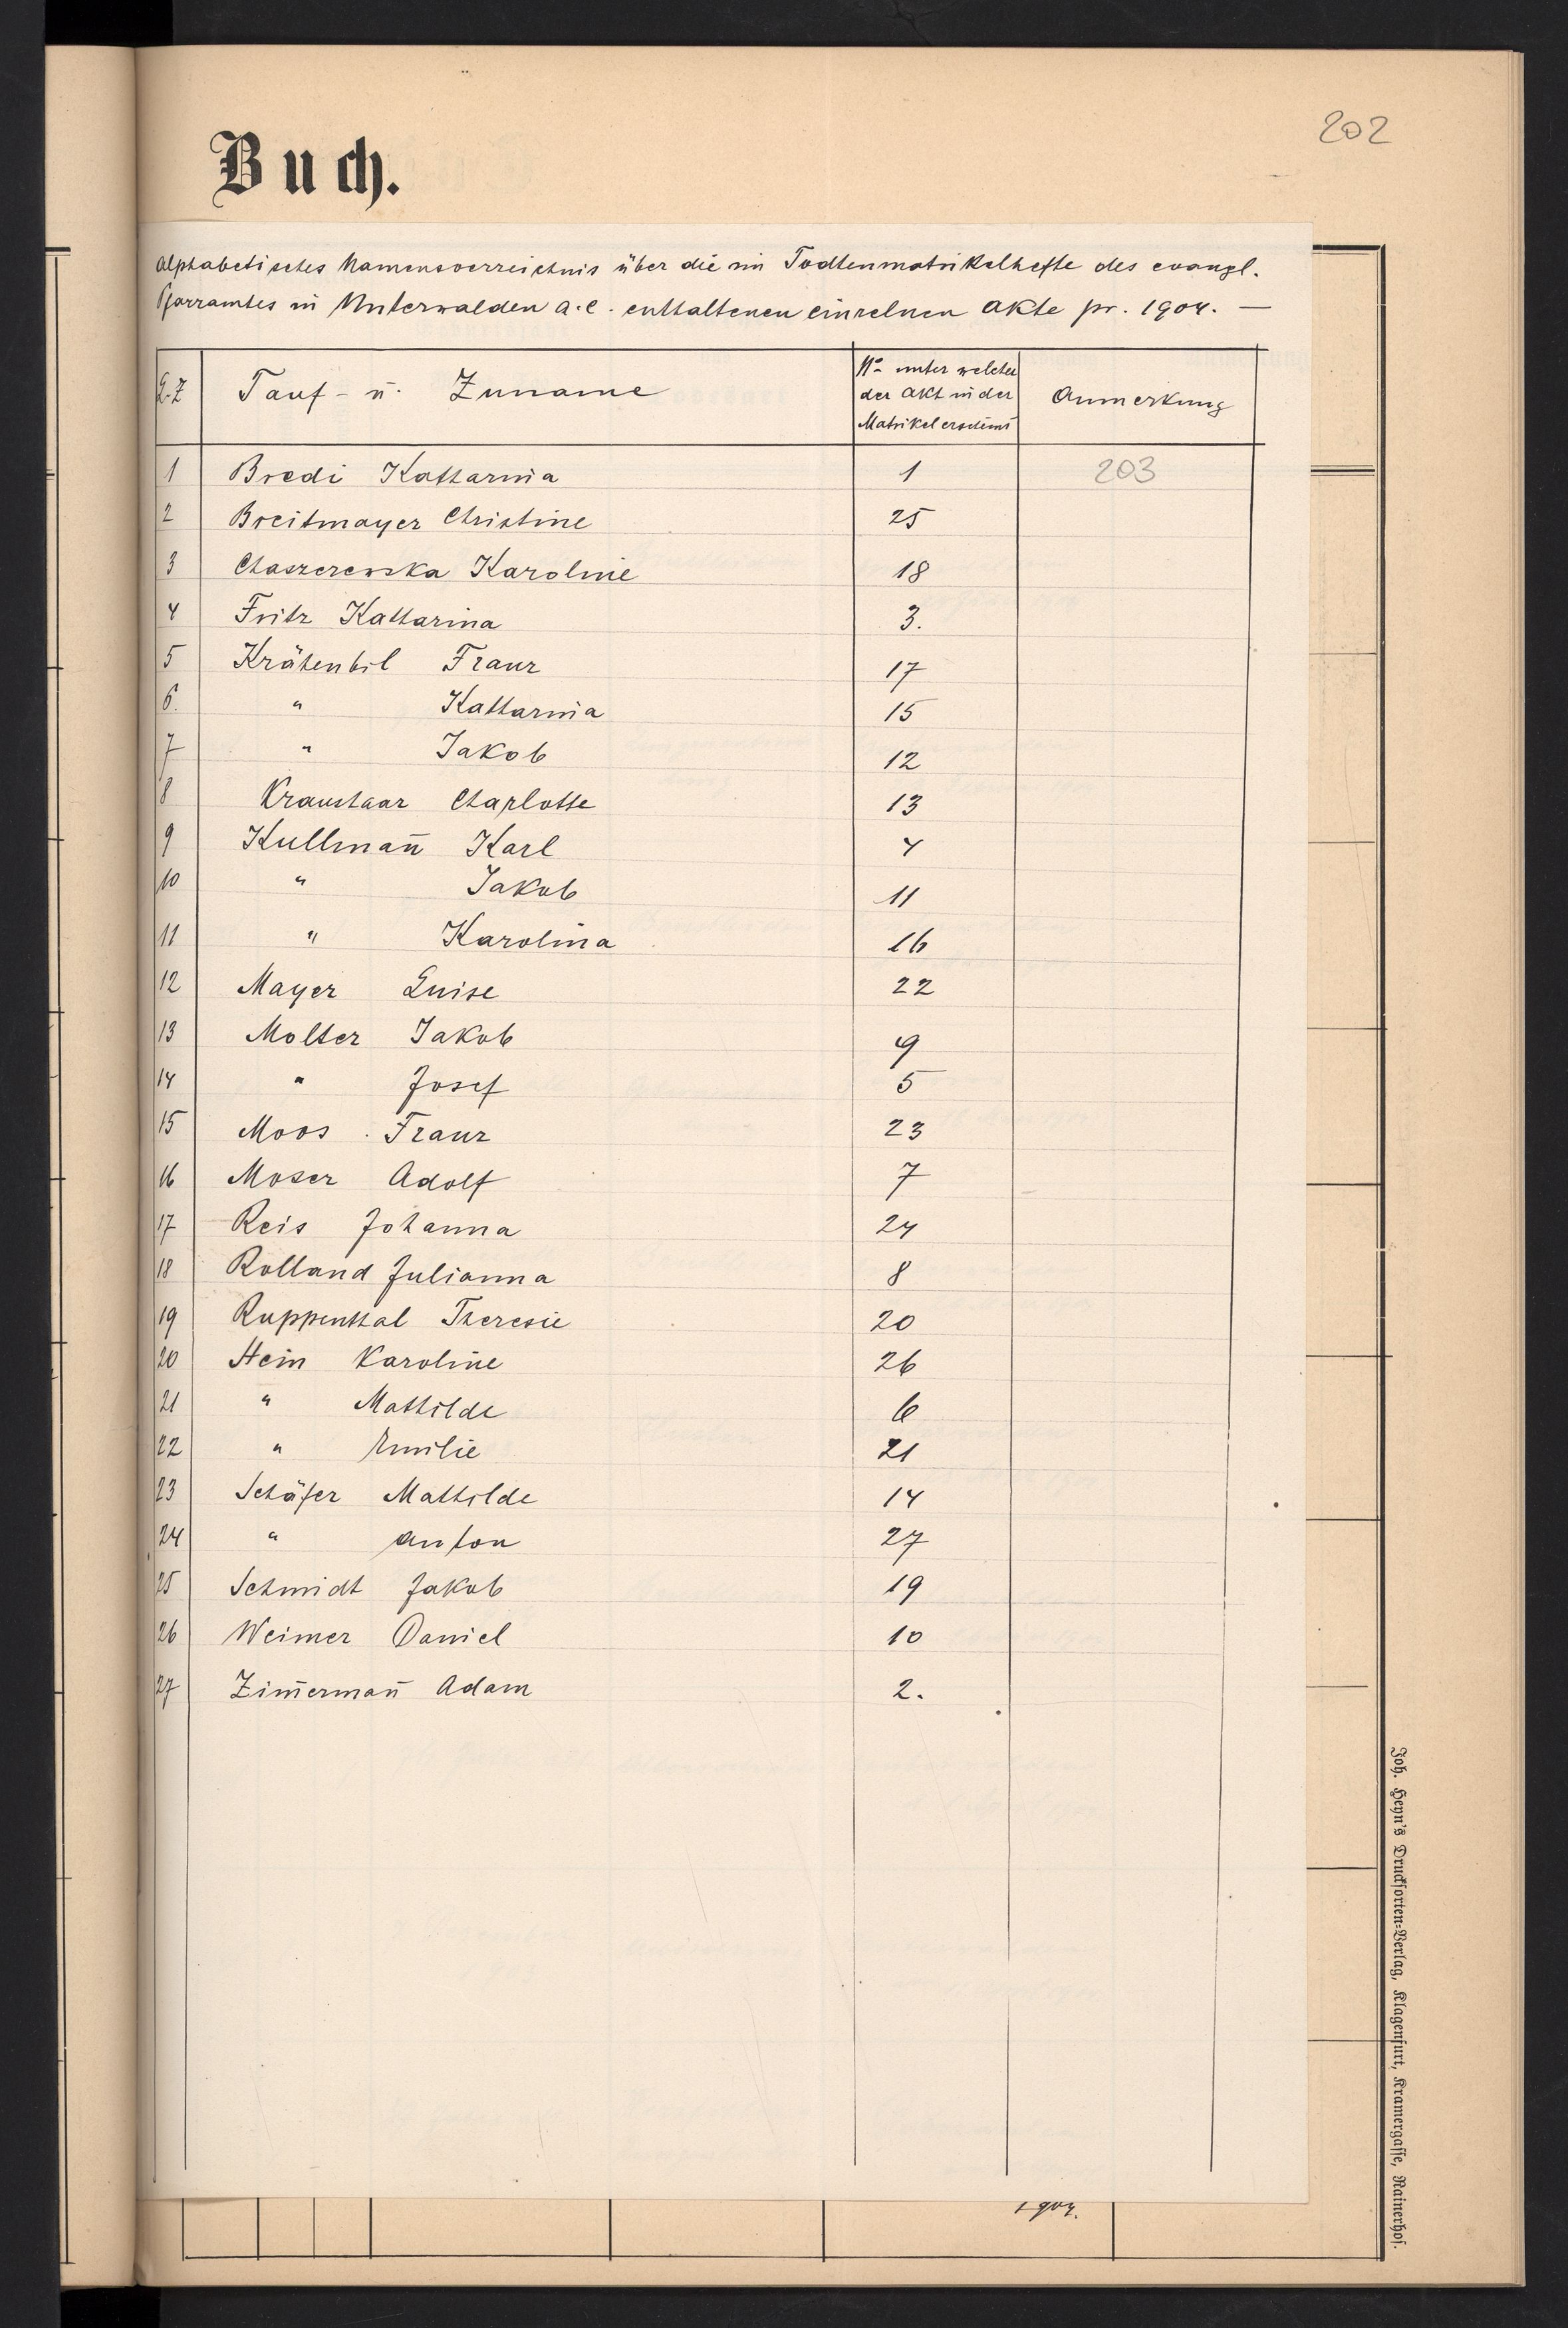 202
Buch.
Alphabetisches Namensverzeichnis über die im Todtenmatrikelhefte des evangl.
Pfarramtes in Unterwalden A.C. enthaltenen einzelnen Akte pr. 1904. —
L.Z Tauf- u. Zuname No unter welcher der Akt in der Matrikel erscheint Anmerkung
1 Bredi Katharina 1 203
2 Breitmayer Christine 25
3 Chaszerewska Karoline 18
4 Fritz Katharina 3.
5 Krähenbil Franz 17
6. " Katharina 15
7 " Jakob 12
8 Kraushaar Charlotte 13
9 Kullman̄ Karl 4
10 " Jakob 11
11 " Karolina 16
12 Mayer Luise 22
13 Molter Jakob 9
14 " Josef 5
15 Moos Franz 23
16 Moser Adolf 7
17 Reis Johanna 24
18 Rolland Julianna 8
19 Ruppenthal Theresie 20
20 Hein Karoline 26
21 " Mathilde 6
22 " Emilie 21
23 Schäfer Mathilde 14
24 " Anton 27
25 Schmidt Jakob 19
26 Weimer Daniel 10
27 Zim̄erman̄ Adam 2.
1904.
Joh. Heyn's Drucksorten-Verlag, Klagenfurt, Kramergasse, Rainerhof.